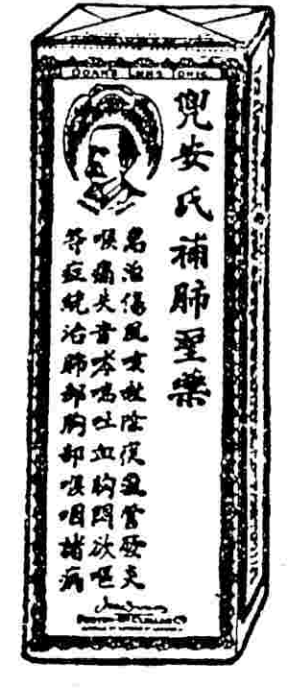 DOAN'S LUNG TONIC
兜安氏補肺聖藥
專治傷風咳嗽除痰氣管發炎
喉痛失音哮喘吐血胸悶欲嘔
等症統治肺部胸部喉咽諸病
FOSTER-McCLELLAN CO